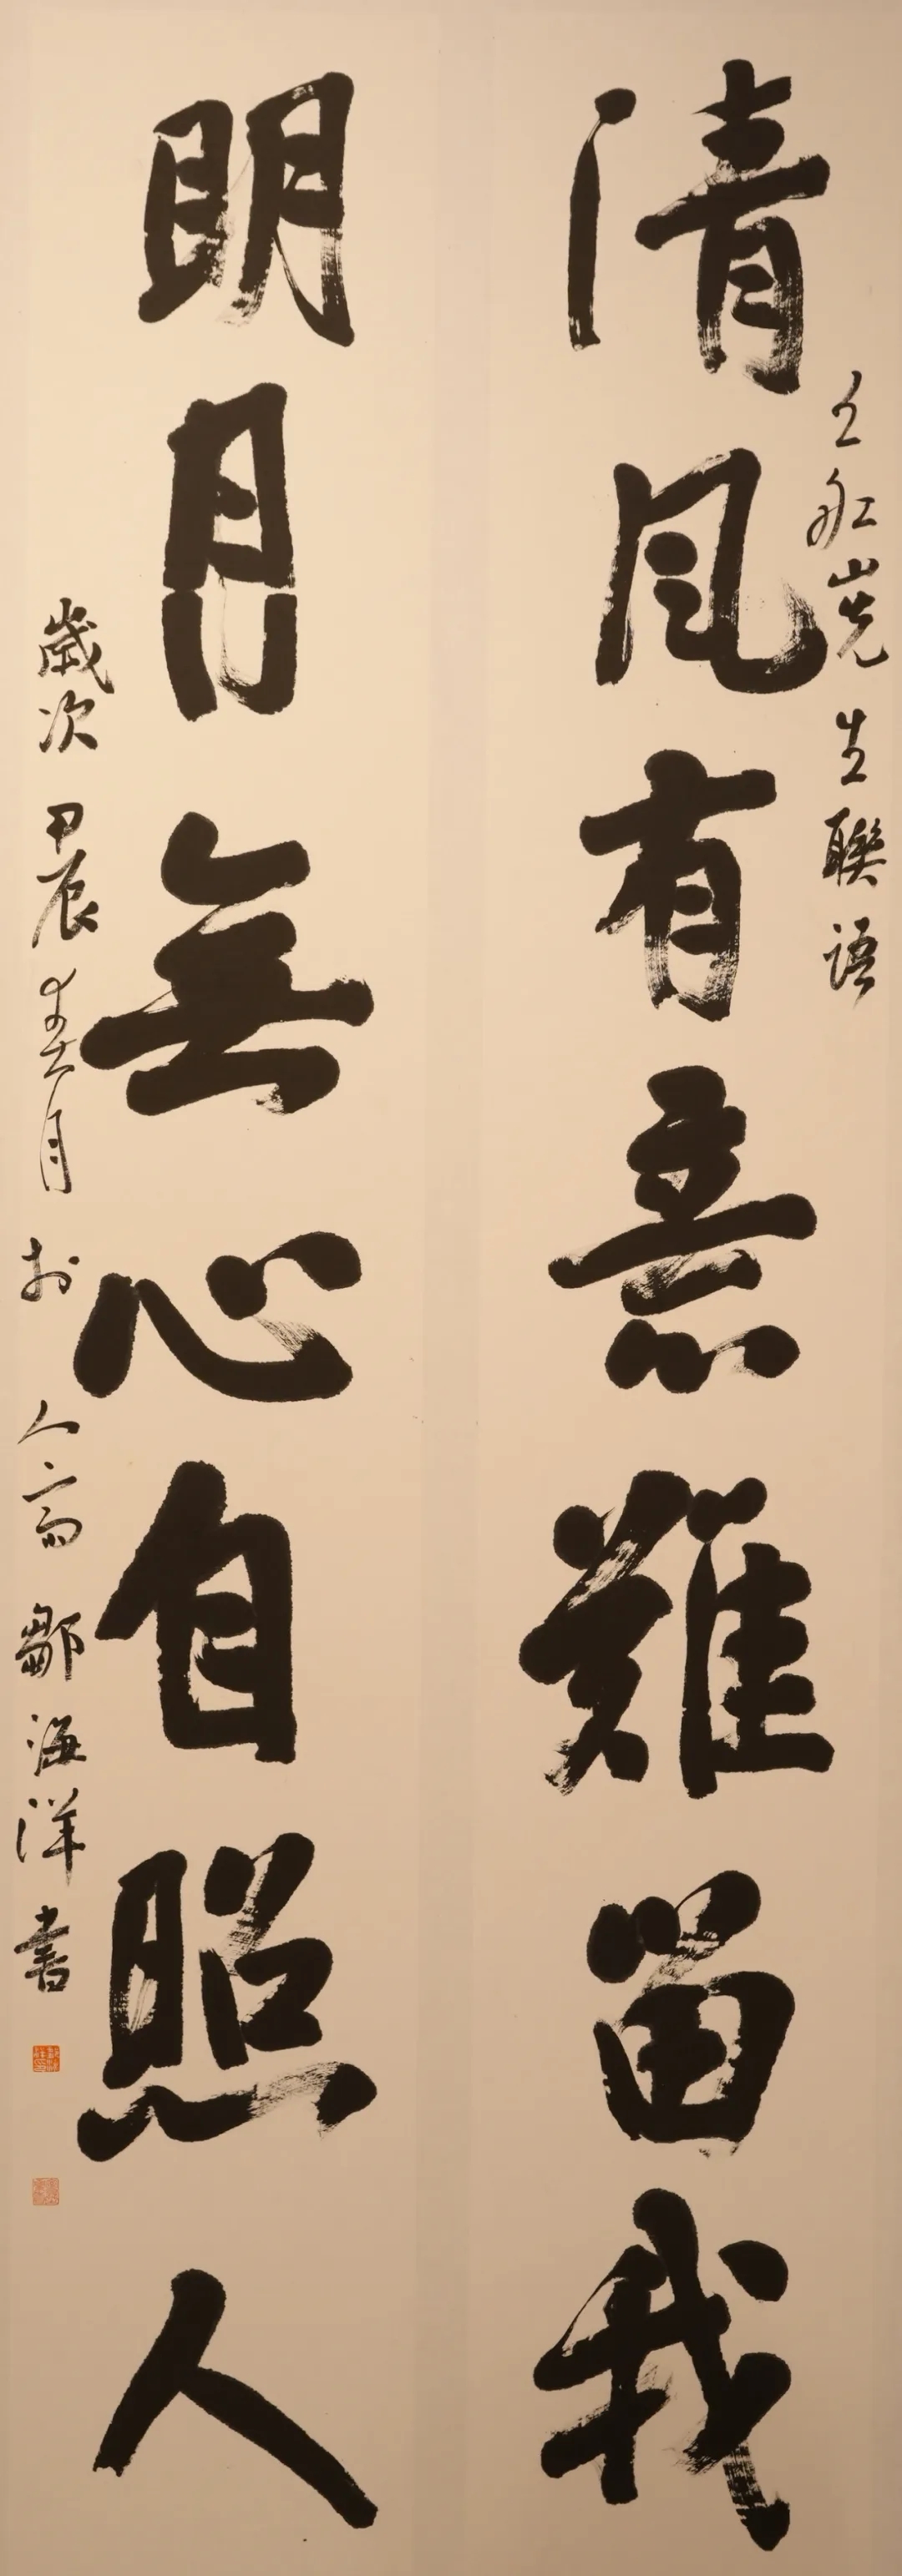 清風有意難留我
王船山先生聯語
明月無心自照人
歲次甲辰春月於人齋鄒海洋書